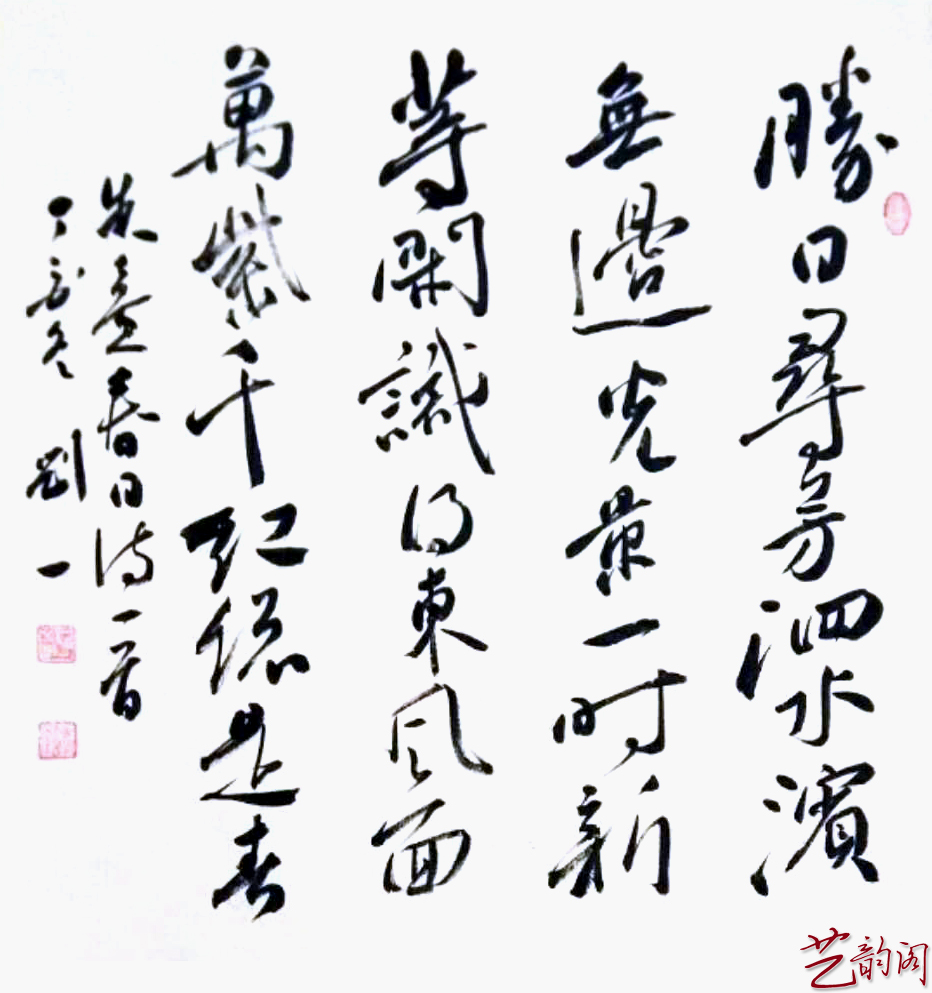 勝日尋芳泗水濱
無邊光景一時新
等閑識得東風面
萬紫千紅總是春
朱熹春日詩一首
丁亥冬 劉一
艺韵阁